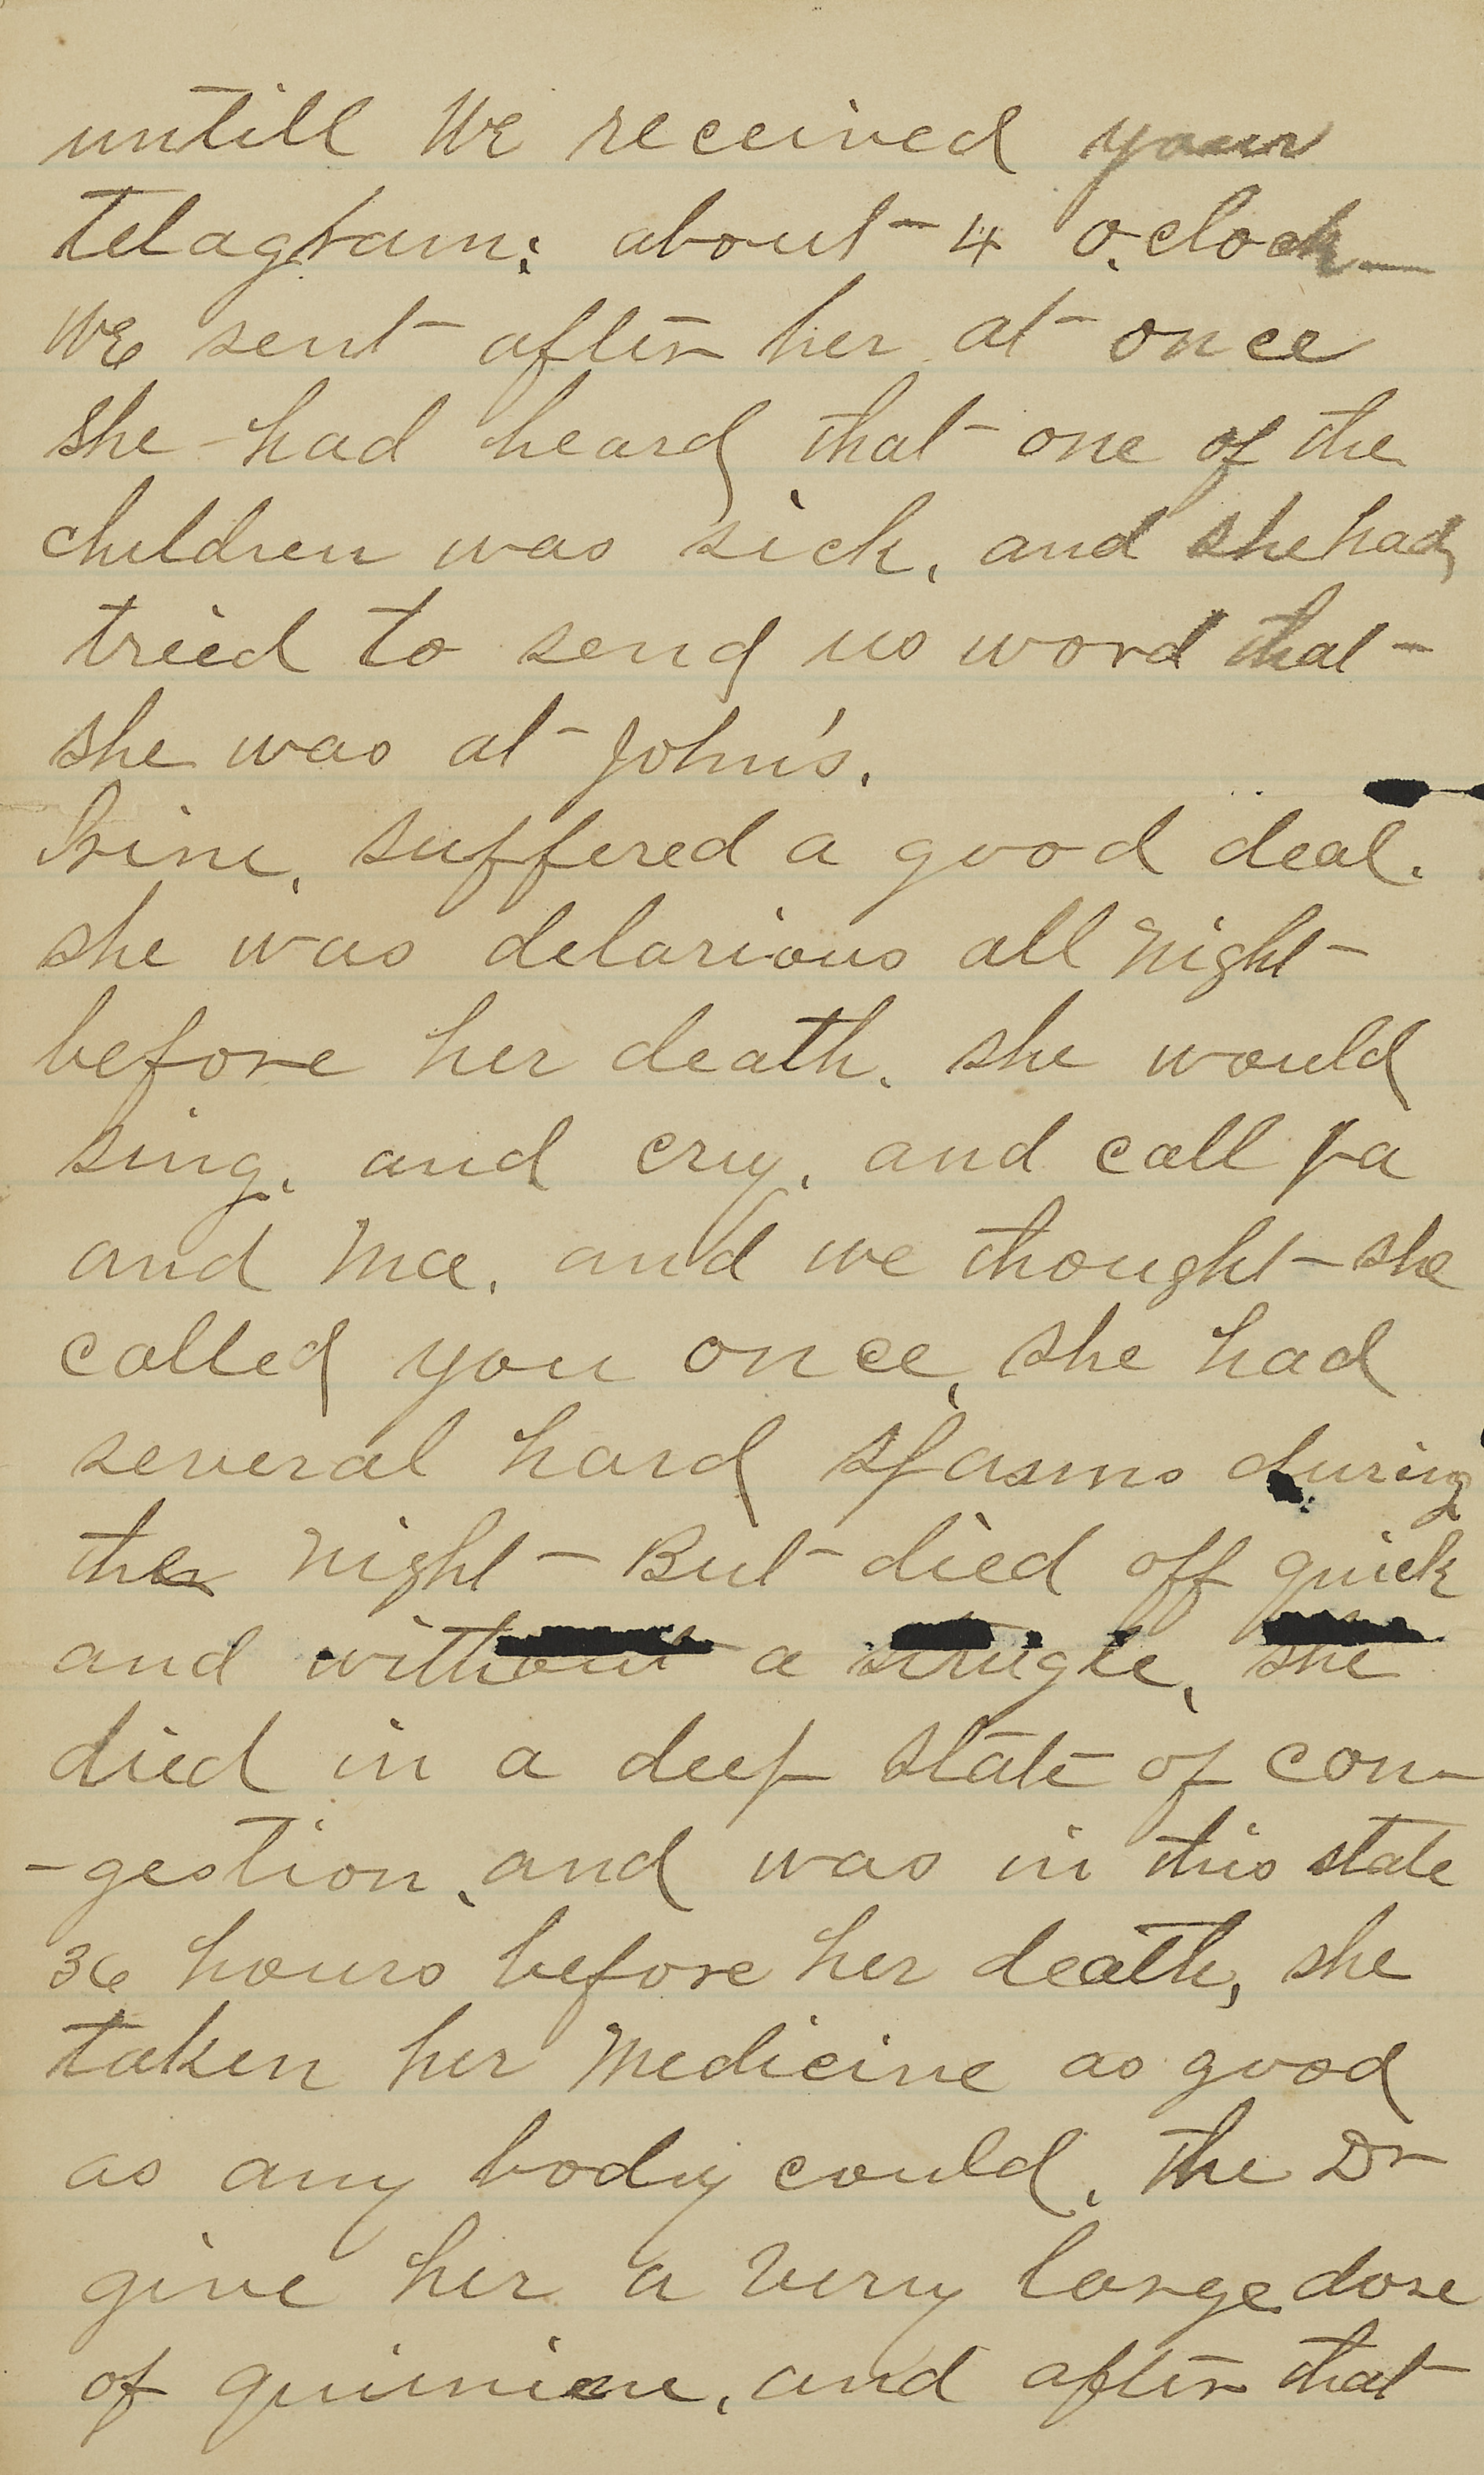 untill We received your
telagram; about 4 o,clock
We sent after her at once
she had heard that one of the
children was sick, and she had,
tried to send us word that
she was at John's.
suffered a good deal.
she was delarious all night
before her death. she would
sing, and cry, and call pa
and Ma. and we thought she
called you once, she had
several hard spasms during
the night But died off quick
and without a strugle, she
died in a deep state of con-
-gestion, and was in this state
36 hours before her death, she
taken her Medicine as good
as any body could, the Dr
give her a very large dose
of quinien, and after that